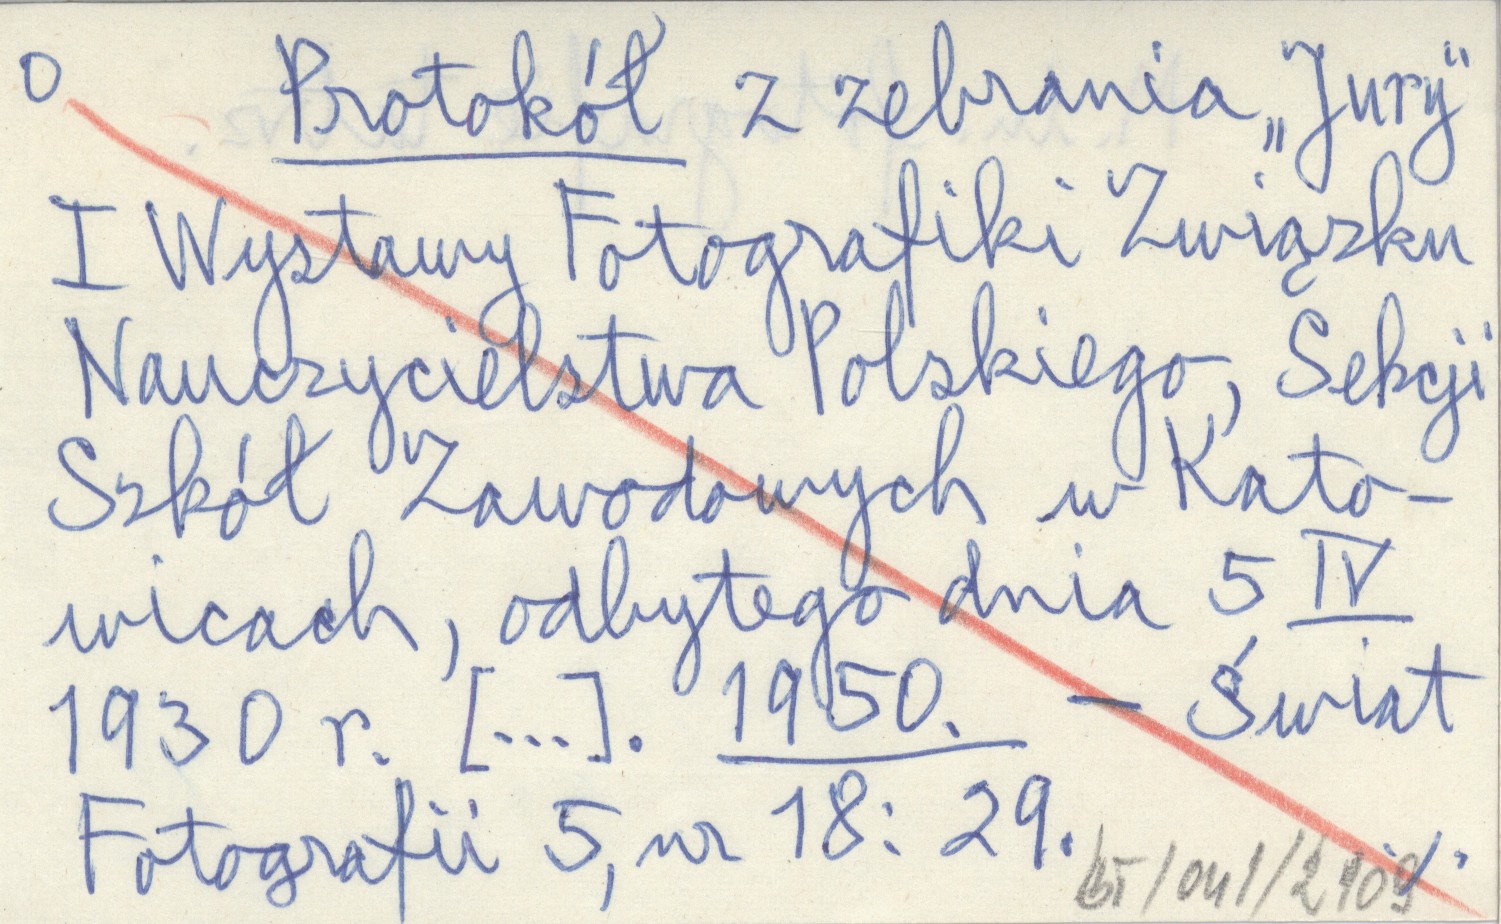 O Protokół z zebrania „Jury"
I Wystawy Fotografiki Związku
Nauczycielstwa Polskiego, Sekcji
Szkół Zawodowych w Kato-
wicach, odbytego dnia 5 IV
1930 r. [...]. 1950. – Świat
Fotografii 5, nr 18: 29. ./.
/041/2109